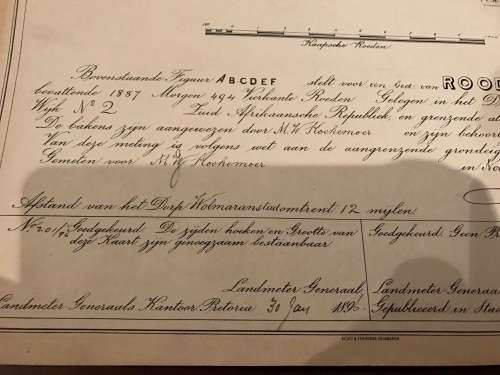 Kaapsche Roeden
Bovenstaande Figuur ABCDEF stelt voor een Eid van ROOD
bevattende 1887 Morgen 494 Vierkante Roeden Gelegen in het D
Wijk No 2 Zuid Afrikaansche Republiek en grenzende al
De bakens zyn aangewezen door M. W. Koekemoer en zyn behoor
Van deze meting is volgens wet aan de aangrenzende grondeig
Gemeten voor M. W. Koekemoer
Afstand van het Dorp Wolmaransstad omtrent 12 mylen
No 20/92 Goedgekeurd De zyden hoeken en Grootte van
deze Kaart zyn genoegzaam bestaanbaar
Goedgekeurd. Geen P
Landmeter Generaal
Landmeter Generaals Kantoor Pretoria 30 Jan 189
Landmeter Generaa
Gepubliceerd in Staa